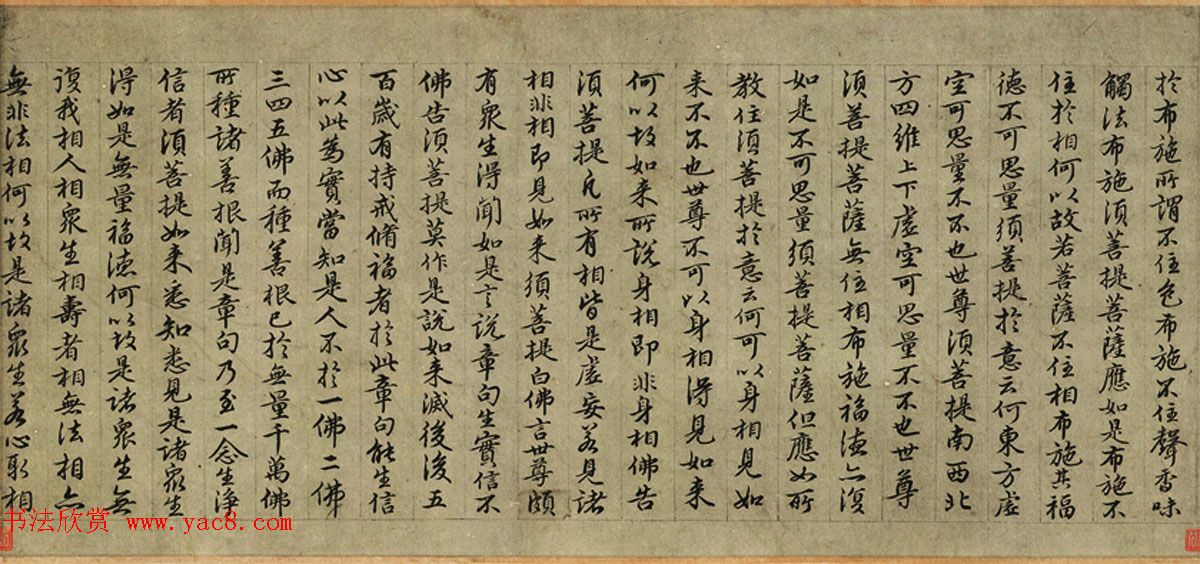 於布施所謂不住色布施不住聲香味
觸法布施須菩提菩薩應如是布施不
住於相何以故若菩薩不住相布施其福
德不可思量須菩提於意云何東方虛
空可思量不不也世尊須菩提南西北
方四維上下虛空可思量不不也世尊
須菩提菩薩無住相布施福德亦復
如是不可思量須菩提菩薩但應如所
教住須菩提於意云何可以身相見如
來不不也世尊不可以身相得見如來
何以故如來所說身相即非身相佛告
須菩提凡所有相皆是虛妄若見諸
相非相即見如來須菩提白佛言世尊頗
有衆生得聞如是言說章句生實信不
佛告須菩提莫作是說如來滅後後五
百歲有持戒脩福者於此章句能生信
心以此為實當知是人不於一佛二佛
三四五佛而種善根已於無量千萬佛
所種諸善根聞是章句乃至一念生淨
信者須菩提如來悉知悉見是諸衆生
得如是無量福德何以故是諸衆生無
復我相人相衆生相壽者相無法相亦
無非法相何以故是諸衆生若心取相
书法欣赏 www.yac8.com